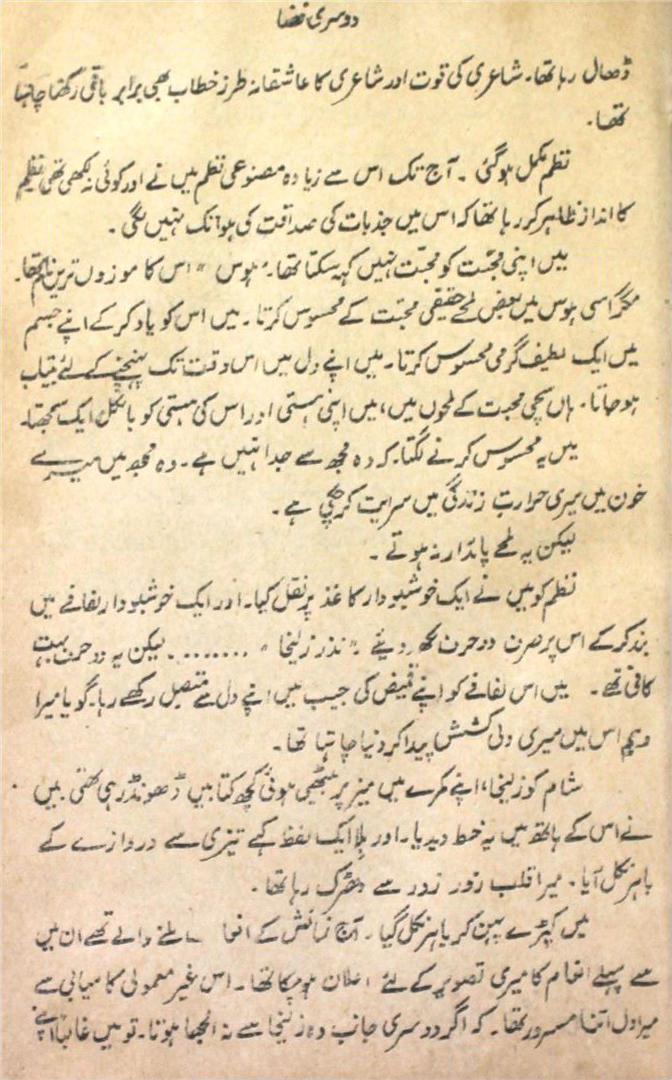 دوسری فضا
ڈھال رہا تھا۔ شاعری کی قوت اور شاعری کا عاشقانہ طرز خطاب بھی برابر باقی رکھنا چاہتا
تھا۔
نظم مکمل ہوگئی ۔ آج تک اس سے زیادہ مصنوعی نظم میں نے اور کوئی نہ لکھی تھی نظم
کا انداز ظاہر کر رہا تھا کہ اس میں جذبات کی صداقت کی ہوا تک نہیں لگی ۔
میں اپنی محبّت کو محبّت نہیں کہہ سکتا تھا۔ "ہوس" اس کا موزوں ترین نام تھا۔
مگر اسی ہوس میں بعض لمحے حقیقی محبّت کے محسوس کرتا۔ میں اس کو یاد کر کے اپنے جسم
میں ایک لطیف گرمی محسوس کرتا۔ میں اپنے دل میں اس وقت تک پہنچنے کے لئے بیتاب
ہو جاتا۔ ہاں سچی محبت کے لمحوں میں، میں اپنی ہستی اور اس کی ہستی کو بالکل ایک سمجھتا۔
میں یہ محسوس کرنے لگتا۔ کہ وہ مجھ سے جدا نہیں ہے۔ وہ مجھ میں میرے
خون میں میری حرارت زندگی میں سرایت کر چکی ہے۔
لیکن یہ لمحے پائدار نہ ہوتے ۔
نظم کو میں نے ایک خوشبودار کاغذ پر نقل کیا۔ اور ایک خوشبودار لفافے میں
بند کر کے اس پر صرف دو حرف لکھ دیئے "نذر زلیخا" ........ لیکن یہ دو حرف بہت
کافی تھے۔ میں اس لفافے کو اپنے قمیض کی جیب میں اپنے دل سے متصل رکھے رہا۔ گویا میرا
وہم اس میں میری دلی کشش پیدا کر دینا چاہتا تھا۔
شام کو زلیخا، اپنے کمرے میں میز پر بیٹھی ہوئی کچھ کتابیں ڈھونڈ رہی تھی میں
نے اس کے ہاتھ میں یہ خط دیدیا۔ اور بلا ایک لفظ کہے تیزی سے دروازے کے
باہر نکل آیا۔ میرا قلب زور زور سے دھڑک رہا تھا۔
میں کپڑے پہن کر باہر نکل گیا ۔ آج نمائش کے ملنے والے تھے ان میں
سے پہلے انعام کا میری تصویر کے لئے اعلان ہو چکا تھا۔ اس غیر معمولی کامیابی سے
میرا دل اتنا مسرور تھا۔ کہ اگر دوسری جانب وہ زلیخا سے نہ الجھا ہوتا۔ تو میں غالباً اپنے